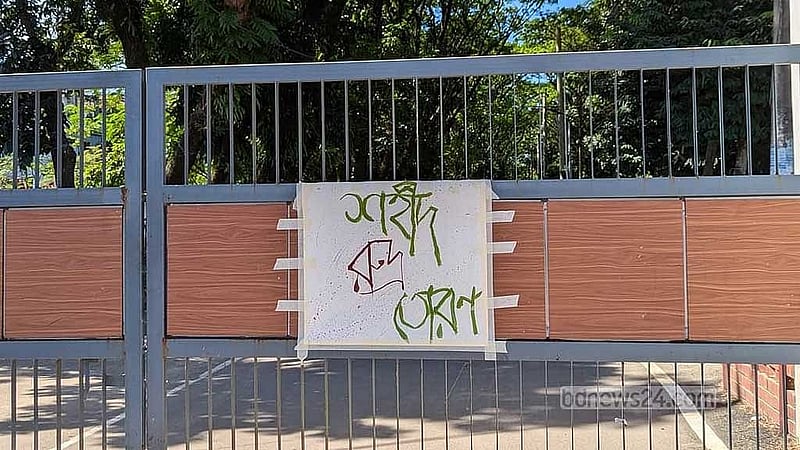 শহীদ
রুদ্র
তোরণ
bdnews24.com